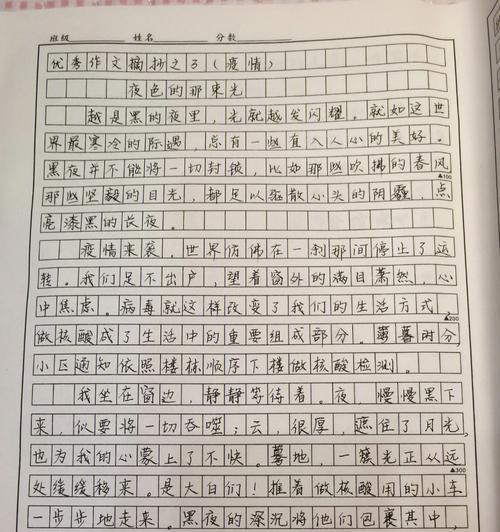 班级 姓名 分数
优秀作文摘抄之3(疫情)
夜色的那束光
越是黑的夜里,光就越发闪耀。就如这世
界最寒冷的际遇,总有一些直入人心的美好。
黑夜并不能将一切封锁,比如那些吹拂的春风
▲100
那些坚毅的目光,都足以驱散心头的阴霾,点
亮漆黑的长夜。
疫情来袭,世界仿佛在一刹那间停止了运
转。我们足不出户,望着窗外的满目萧然,心
中焦虑。病毒就这样改变了我们的生活方式,
▲200
做核酸成了生活中的重要组成部分。薄暮时分,
小区通知依照楼栋顺序下楼做核酸检测。
我坐在窗边,静静等待着。夜,慢慢黑下
来,似要将一切吞噬;云,很厚,遮住了月光,
也为我的心蒙上了不快。蓦地,一簇光正从远
▲300
处缓缓移来。是大白们!推着做核酸用的小车
一步步地走来。黑夜的深沉将他们包裹其中,